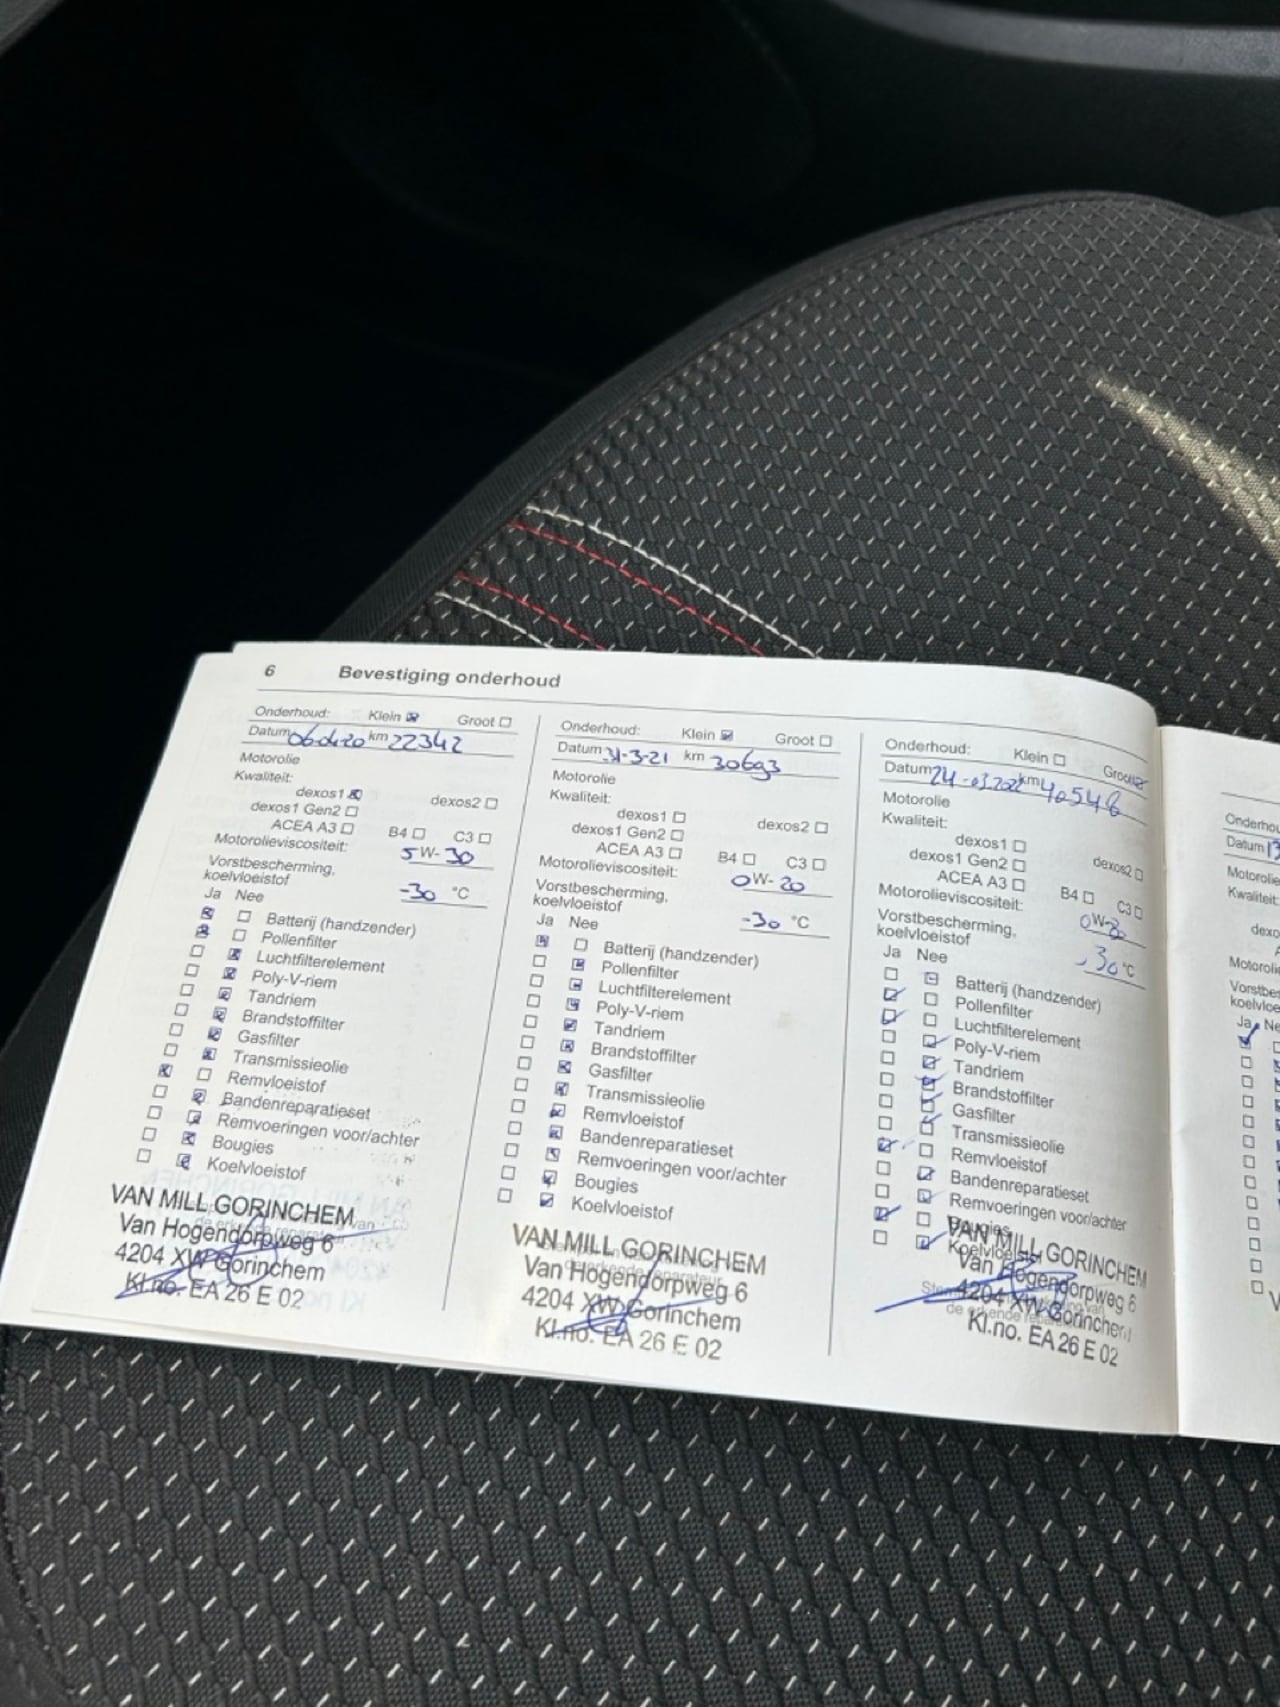 6 Bevestiging onderhoud
Onderhoud: Klein Groot
Datum 06-04-20 km 22342
Motorolie
Kwaliteit:
dexos1 dexos2
dexos1 Gen2
ACEA A3 B4 C3
Motorolieviscositeit:
5 W- 30
Vorstbescherming,
koelvloeistof -30 °C
Ja Nee
Batterij (handzender)
Pollenfilter
Luchtfilterelement
Poly-V-riem
Tandriem
Brandstoffilter
Gasfilter
Transmissieolie
Remvloeistof
Bandenreparatieset
Remvoeringen voor/achter
Bougies
Koelvloeistof
VAN MILL GORINCHEM
Van Hogendorpweg 6
4204 XW Gorinchem
Kl.no. EA 26 E 02
Onderhoud: Klein Groot
Datum 31-3-21 km 30693
Motorolie
Kwaliteit:
dexos1 dexos2
dexos1 Gen2
ACEA A3 B4 C3
Motorolieviscositeit:
0 W- 20
Vorstbescherming,
koelvloeistof -30 °C
Ja Nee
Batterij (handzender)
Pollenfilter
Luchtfilterelement
Poly-V-riem
Tandriem
Brandstoffilter
Gasfilter
Transmissieolie
Remvloeistof
Bandenreparatieset
Remvoeringen voor/achter
Bougies
Koelvloeistof
VAN MILL GORINCHEM
Van Hogendorpweg 6
4204 XW Gorinchem
Kl.no. EA 26 E 02
Onderhoud: Klein Groot
Datum 24-03-2022 km 40548
Motorolie
Kwaliteit:
dexos1 dexos2
dexos1 Gen2
ACEA A3 B4 C3
Motorolieviscositeit:
Vorstbescherming,
koelvloeistof
-30 °C
Ja Nee
Batterij (handzender)
Pollenfilter
Luchtfilterelement
Poly-V-riem
Tandriem
Brandstoffilter
Gasfilter
Transmissieolie
Remvloeistof
Bandenreparatieset
Remvoeringen voor/achter
Bougies
Koelvloeistof
VAN MILL GORINCHEM
Van Hogendorpweg 6
4204 XW Gorinchem
Kl.no. EA 26 E 02
Datum
Ja